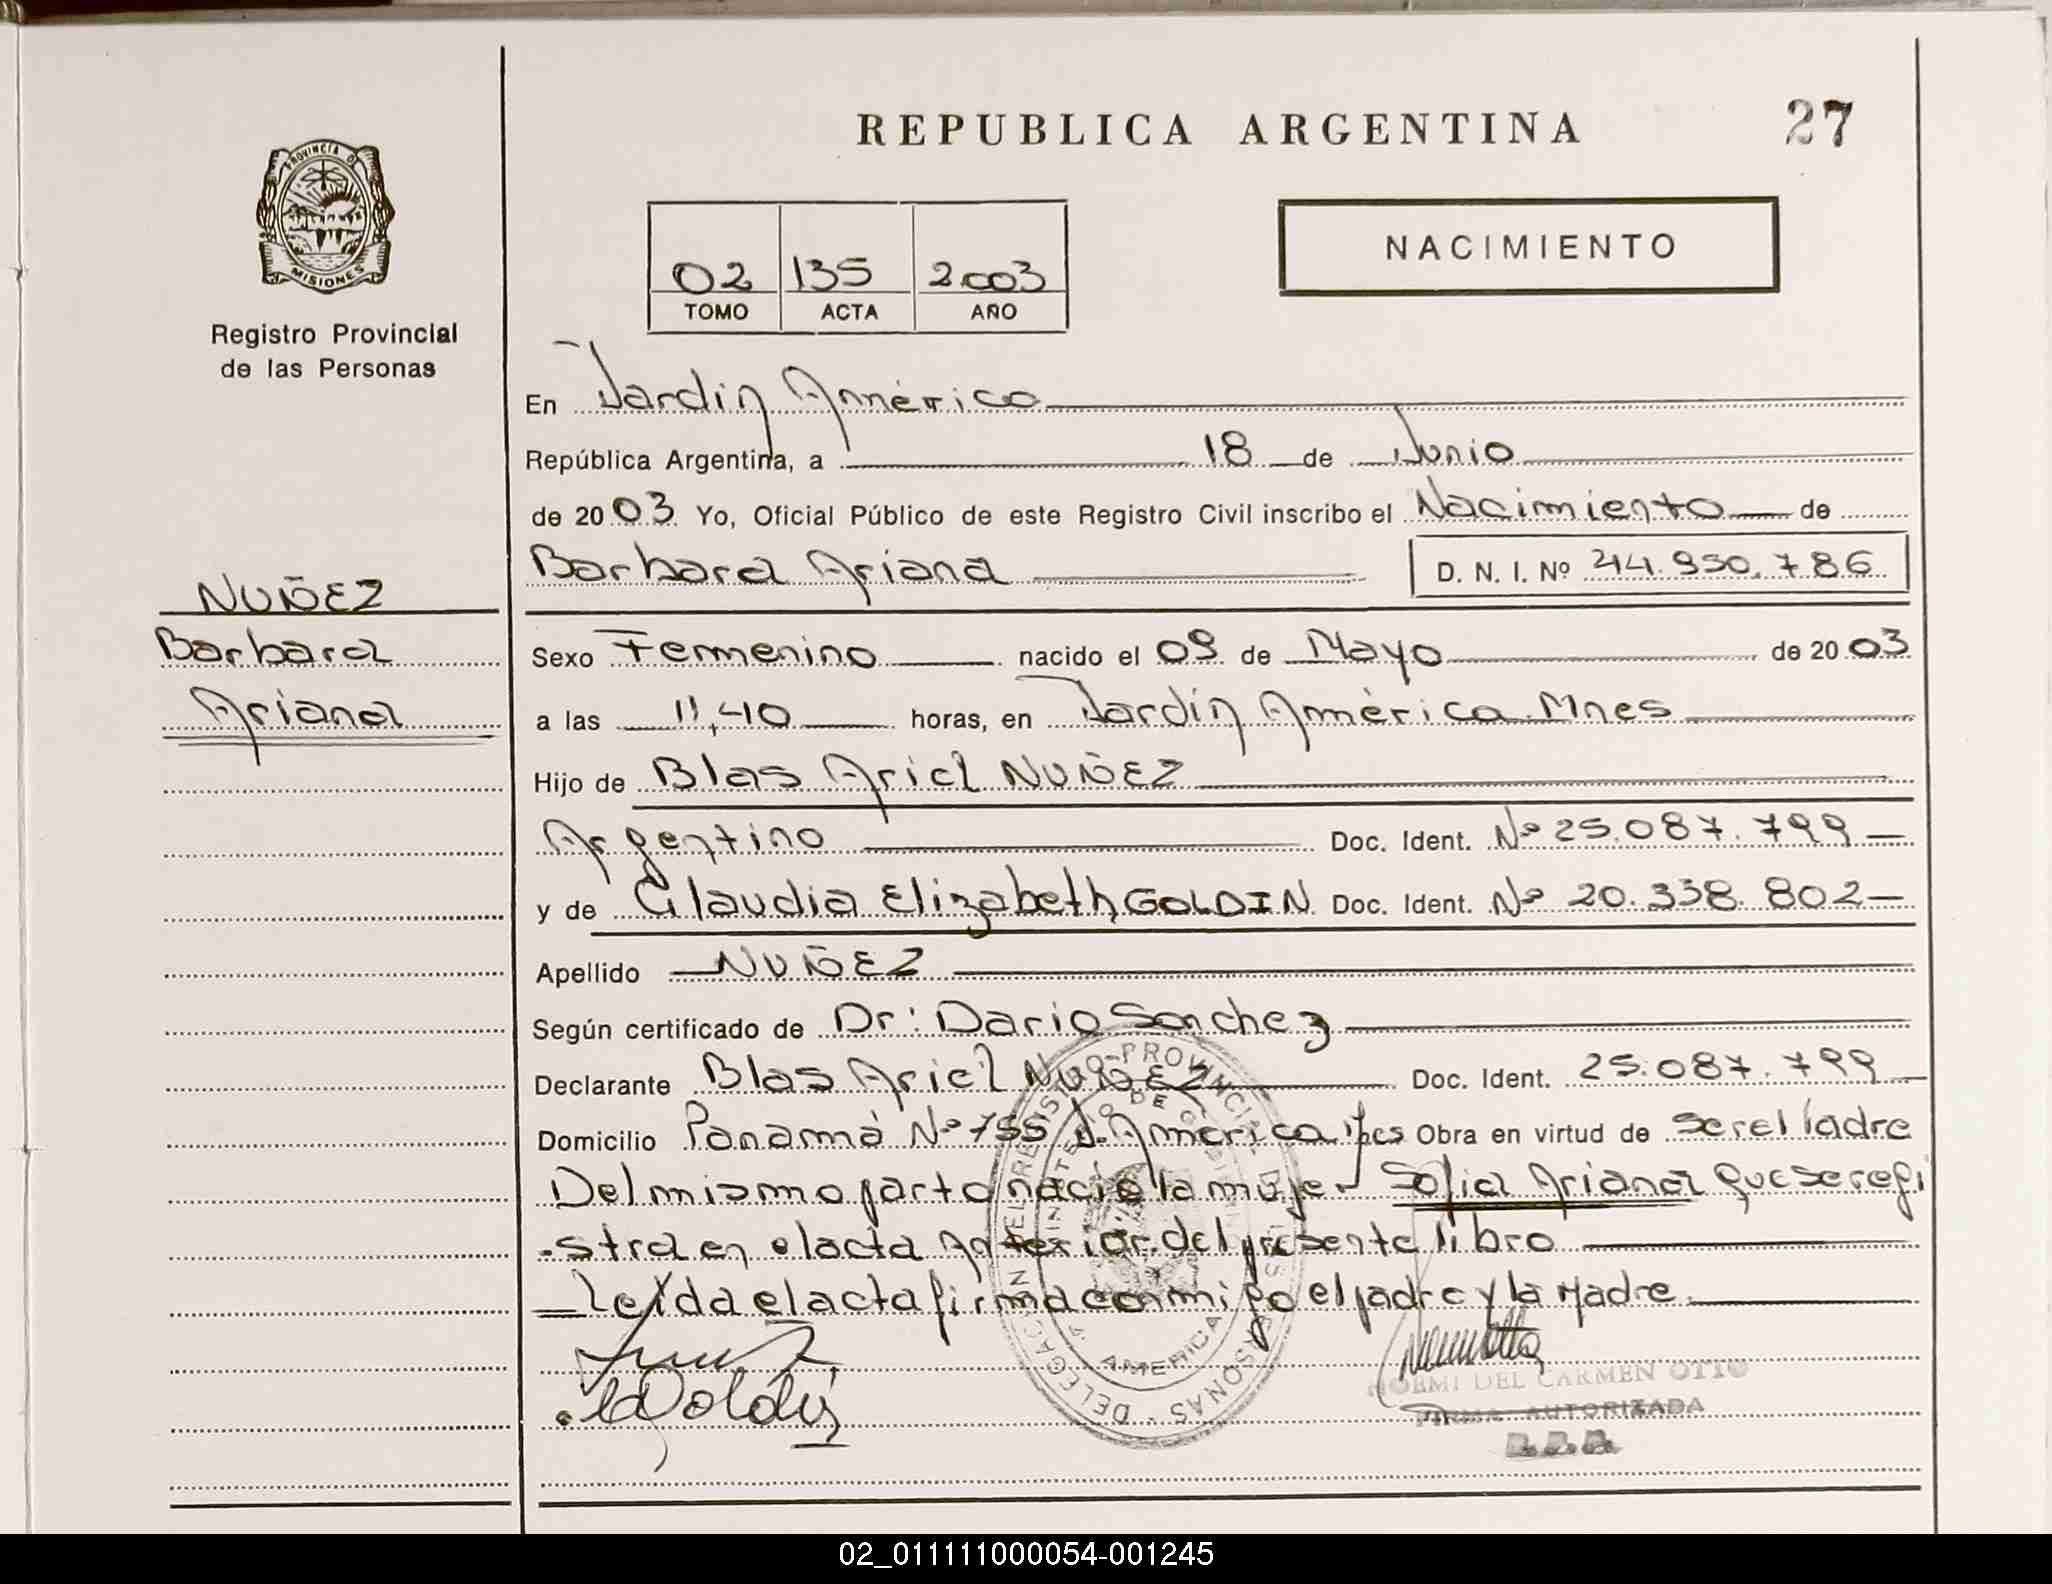 REPUBLICA ARGENTINA
27
PROVINCIA DE
MISIONES
Registro Provincial
de las Personas
02 135 2003
TOMO ACTA AÑO
NACIMIENTO
En Jardín América
República Argentina, a 18 de Junio
de 2003 Yo, Oficial Público de este Registro Civil inscribo el Nacimiento de
Barbara Ariana D. N. I. Nº 44.950.786
NUÑEZ
Barbara
Ariana
Sexo Femenino nacido el 09 de Mayo de 2003
a las 11,40 horas, en Jardín América. Mnes
Hijo de Blas Ariel NUÑEZ
Argentino Doc. Ident. Nº 25.087.799
y de Claudia Elizabeth GOLDIN Doc. Ident. Nº 20.338.802
Apellido NUÑEZ
Según certificado de Dr: Dario Sanchez
Declarante Blas Ariel NUÑEZ Doc. Ident. 25.087.799
Domicilio Panamá Nº 755 J. América Obra en virtud de ser el Padre
Del mismo parto nació la mujer Sofia Ariana que se regi
stra en el acta anterior del presente libro
Leída el acta firma conmigo el padre y la Madre
NOEMI DEL CARMEN OTTO
FIRMA AUTORIZADA
02_011111000054-001245